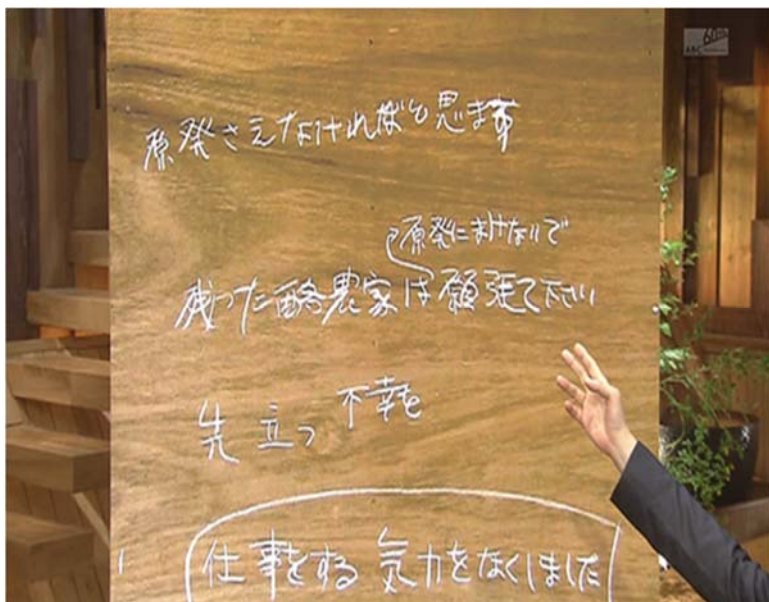 原発さえなければと思ます
原発にまけないで
残った酪農家は願張て下さい
先立つ不幸を
仕事をする気力をなくしました
ABC